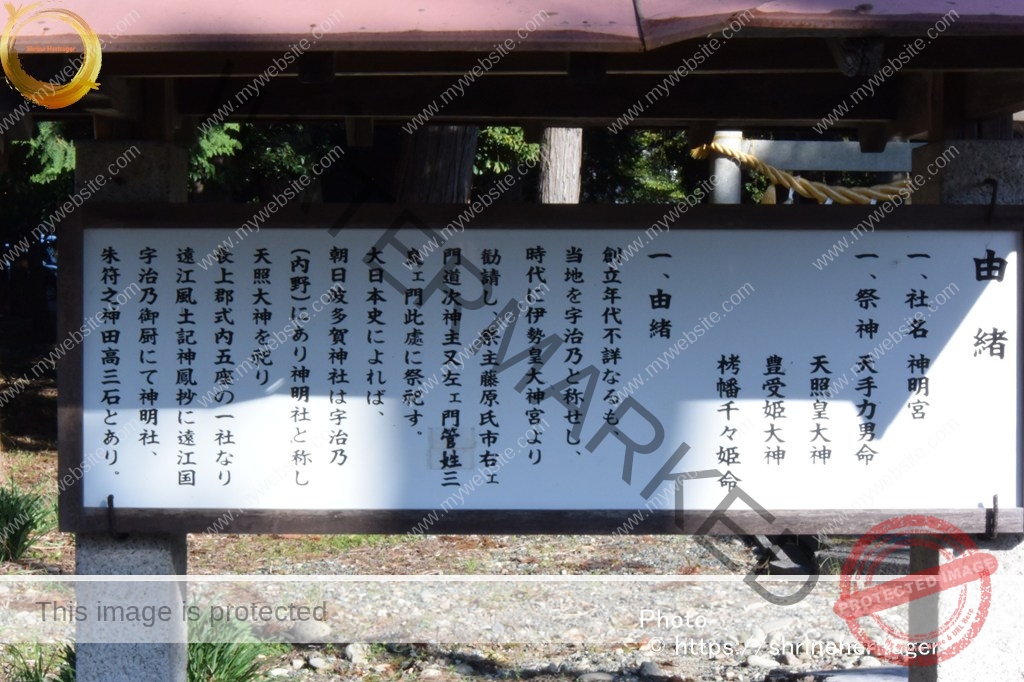 由緒
一、社名 神明宮
一、祭神 天手力男命
天照皇大神
豊受姫大神
栲幡千々姫命
一、由緒
創立年代不詳なるも
当地を宇治乃と称せし、
時代に伊勢皇大神宮より
勧請し、祭主藤原氏市右ェ
門道次神主又左ェ門管姓三
ェ門此處に祭祀す。
大日本史によれば、
朝日波多賀神社は宇治乃
(内野)にあり神明社と称し
天照大神を祀り
上郡式内五座の一社なり
遠江風土記神鳳抄に遠江国
宇治乃御厨にて神明社、
朱符之神田高三石とあり。
WATERMARKED
www.mywebsite.com
This image is protected
PROTECTED IMAGE
Photo
© https://shrineheritager